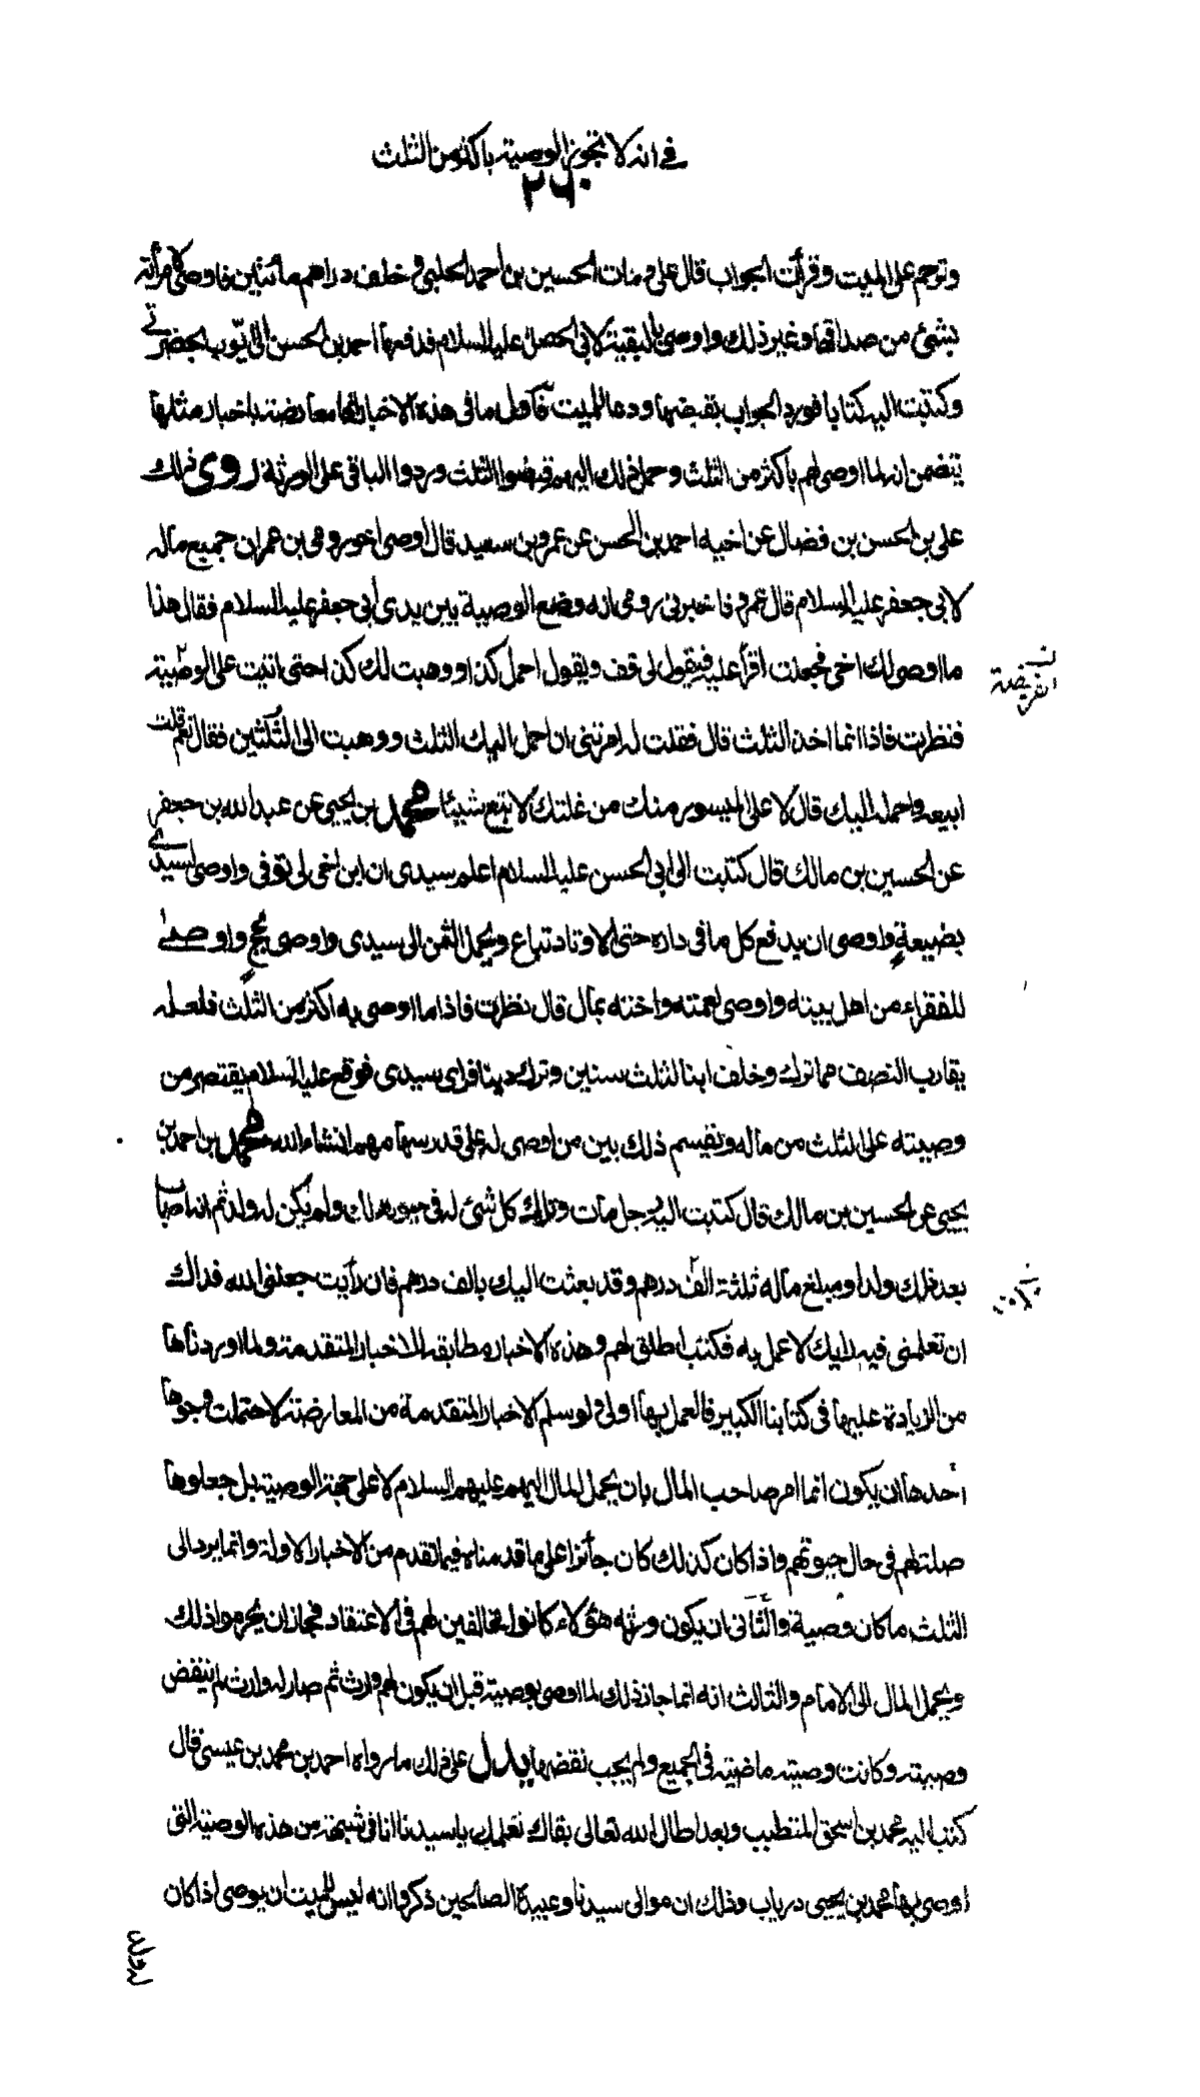 في انه لا تجوز الوصية باكثر من الثلث
٢٦٠
وترحم على الميت وقرأت الجواب قال علي ومات الحسين بن احمد الحلبي و خلف دراهم مأتين فاوصى لامرأته
بشئ من صداقها وغير ذلك واوصى بالبقية لابي الحسن عليه السلام فدفعها احمد بن الحسن الى ايوب بحضرتي
وكتبت اليه كتابا فورد الجواب بقبضها ودعا للميت فاول ما في هذه الاخبار انها معارضة باخبار مثلها
يتضمن انه لما اوصى لهم باكثر من الثلث وحمل ذلك اليهم قبضوا الثلث وردوا الباقي على الورثة روى ذلك
علي بن الحسن بن فضال عن اخيه احمد بن الحسن عن عمرو بن سعيد قال اوصى اخو رومي بن عمران جميع ماله
لابي جعفر عليه السلام قال عمرو فاخبرني رومي انه وضع الوصية بين يدي أبي جعفر عليه السلام فقال هذا
ما اوصى لك اخي فجعلت اقرأ عليه فيقول لي قف ويقول احمل كذا ووهبت لك كذا حتى اتيت على الوصية
فنظرت فاذا انما اخذ الثلث قال فقلت له امرتني ان احمل اليك الثلث ووهبت الي الثلثين فقال نعم قلت
ابيعه واحمله اليك قال لا على الميسور منك من غلتك لا تبع شيئا محمد بن يحيى عن عبد الله بن جعفر
عن الحسين بن مالك قال كتبت الى ابي الحسن عليه السلام اعلم سيدي ان ابن اخي لي توفي واوصى لسيدي
بضيعة واوصى ان يدفع كل ما في داره حتى الاوتاد تباع ويحمل الثمن الى سيدي واوصى بحج واوصى
للفقراء من اهل بيته واوصى لعمته واخته بمال قال نظرت فاذا ما اوصى به اكثر من الثلث فلعله
يقارب النصف مما ترك وخلف ابنا لثلث سنين وترك دينا فرأي سيدي فوقع عليه السلام يقتصر من
وصيته على الثلث من ماله ويقسم ذلك بين من اوصى له على قدر سهامهم انشاء الله محمد بن احمد بن
يحيى عن الحسين بن مالك قال كتبت اليه رجل مات وترك كل شئ له في حيوته لك ولم يكن له ولد ثم انه اصاب
بعد ذلك ولدا ومبلغ ماله ثلثة الف درهم وقد بعثت اليك بالف درهم فان رأيت جعلني الله فداك
ان تعلمني فيه رايك لاعمل به فكتب اطلق لهم وهذه الاخبار مطابقة للاخبار المتقدمة ولما اوردناها
من الزيادة عليها في كتابنا الكبير فالعمل بها اولى ولو سلم الاخبار المتقدمة من المعارضة لاحتملت وجوها
أحدها ان يكون انما امر صاحب المال بان يحمل المال اليهم عليهم السلام لا على جهة الوصية بل جعلوها
صلة لهم في حال حيوتهم واذا كان كذلك كان جائزا على ما قدمناه فيما تقدم من الاخبار الاولة وانما يرد الى
الثلث ما كان وصية والثاني ان يكون ورثه هؤلاء كانوا مخالفين لهم في الاعتقاد فجاز ان يحرموا ذلك
ويحمل المال الى الامام والثالث انه انما جاز ذلك لما اوصى بوصيته قبل ان يكون لهم وارث ثم صار له وارث لم ينتقض
وصيته وكانت وصيته ماضية في الجميع ولم يجب نقضها يدل على ذلك ما رواه احمد بن محمد بن عيسى قال
كتب اليه محمد بن اسحق المتطبب وبعد اطال الله تعالى بقاك نعلمك يا سيدنا انا في شبهة من هذه الوصية التي
اوصى بها محمد بن يحيى درياب وذلك ان موالي سيدنا وعبيده الصالحين ذكروا انه ليس للميت ان يوصي اذا كان
له ولد